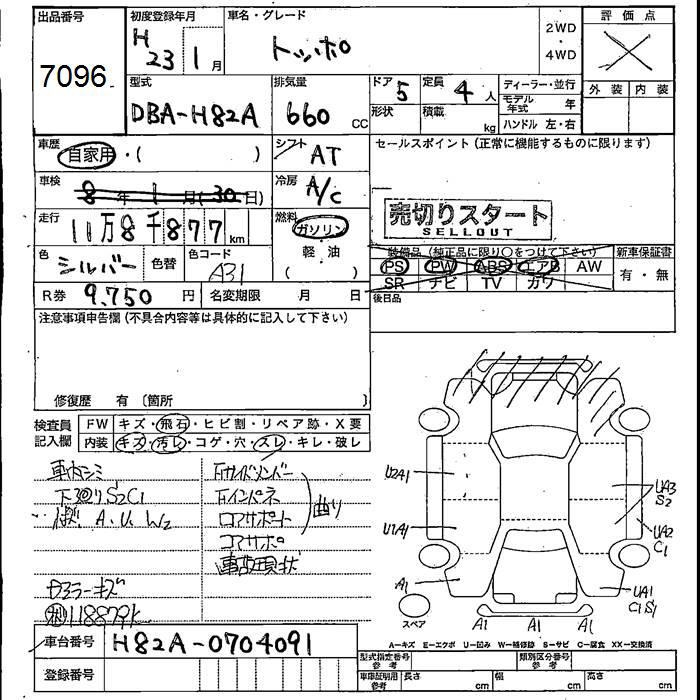 出品番号
7096
初度登録年月
H 23 1月
車名・グレード
トッポ
2WD
・
4WD
評価点
外装 内装
型式
DBA-H82A
排気量
660 CC
ドア 5
形状
定員 4人
積載 kg
ディーラー・並行
モデル年式 年
ハンドル 左・右
車歴
自家用・( )
シフト
AT
セールスポイント (正常に機能するものに限ります)
車検
8年1月(30日)
冷房
A/C
売切りスタート
SELLOUT
走行
11万8千877km
燃料
ガソリン
軽・油
( )
色
シルバー
色替
色コード
A31
装備品 (純正品に限り○をつけて下さい)
PS PW ABS エアB AW
SR ナビ TV カワ
新車保証書
有・無
R券 9,750円
名変期限 月 日
後日品
注意事項申告欄 (不具合内容等は具体的に記入して下さい)
修復歴 有 〔箇所 〕
検査員記入欄
FW キズ・飛石・ヒビ割・リペア跡・X要
内装 キズ・汚レ・コゲ・穴・スレ・キレ・破レ
車内シミ
下廻りS2C1
A.U.W2
Fサイドメンバー
Fインパネ
コアサポート
曲り
コアサポ
車両現状
118879k
U2A1
U1A1
A1
UA3
S2
UA2
C1
UA1
C1S1
A1 A1 A1
スペア
A=キズ E=エクボ U=凹み W=補修跡 S=サビ C=腐食 XX=交換済
車台番号
H82A-0704091
登録番号
型式指定番号 参考
類別区分番号 参考
車庫証明用 参考
長さ cm
幅 cm
高さ cm